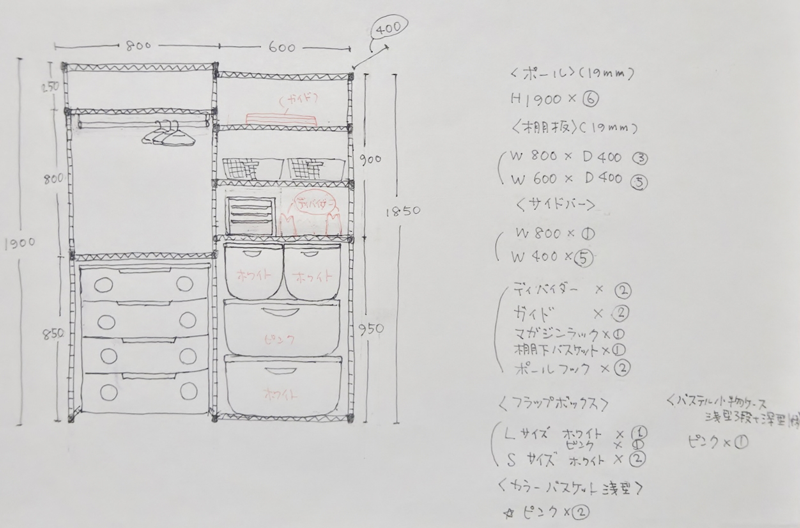 400
800
600
250
800
1900
850
900
1850
950
(ガイド)
ディバイダー
ホワイト
ホワイト
ピンク
ホワイト
<ポール>(19mm)
H1900×⑥
<棚板>(19mm)
W 800 × D 400 ③
W 600 × D 400 ⑤
<サイドバー>
W 800 × ①
W 400 × ⑤
ディバイダー × ②
ガイド × ②
マガジンラック×①
棚下バスケット×①
ポールフック × ②
<フラップボックス>
Lサイズ ホワイト × ①
ピンク × ①
Sサイズ ホワイト × ②
<カラーバスケット 浅型>
☆ ピンク×②
<パステル小物ケース
浅型3段+深型1段>
ピンク×①